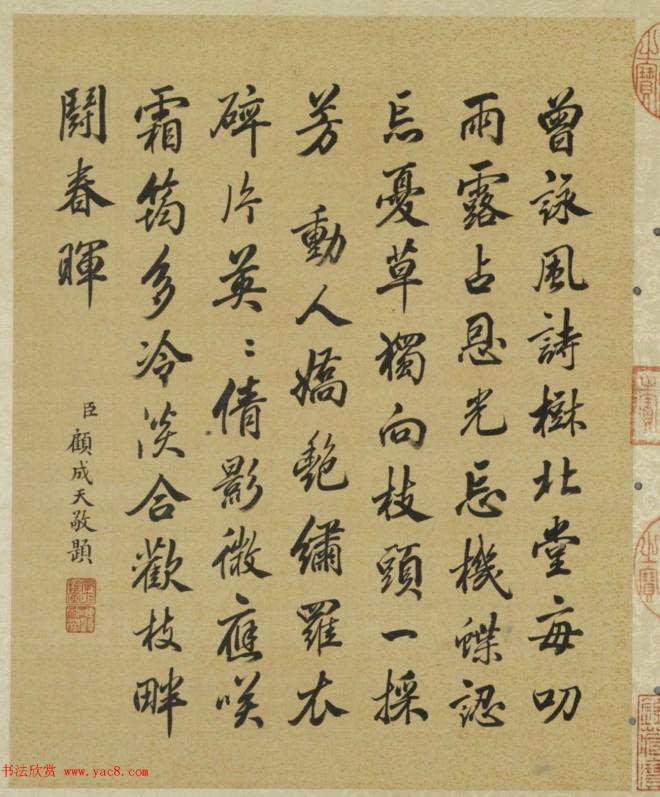 曾詠風詩樹北堂每叨
雨露占恩光忘機蝶認
忘憂草獨向枝頭一採
芳 動人嬌艷繡羅衣
碎片英英倩影微應咲
霜筠多冷淡合歡枝畔
鬪春暉
臣顧成天敬題
书法欣赏 www.yac8.com